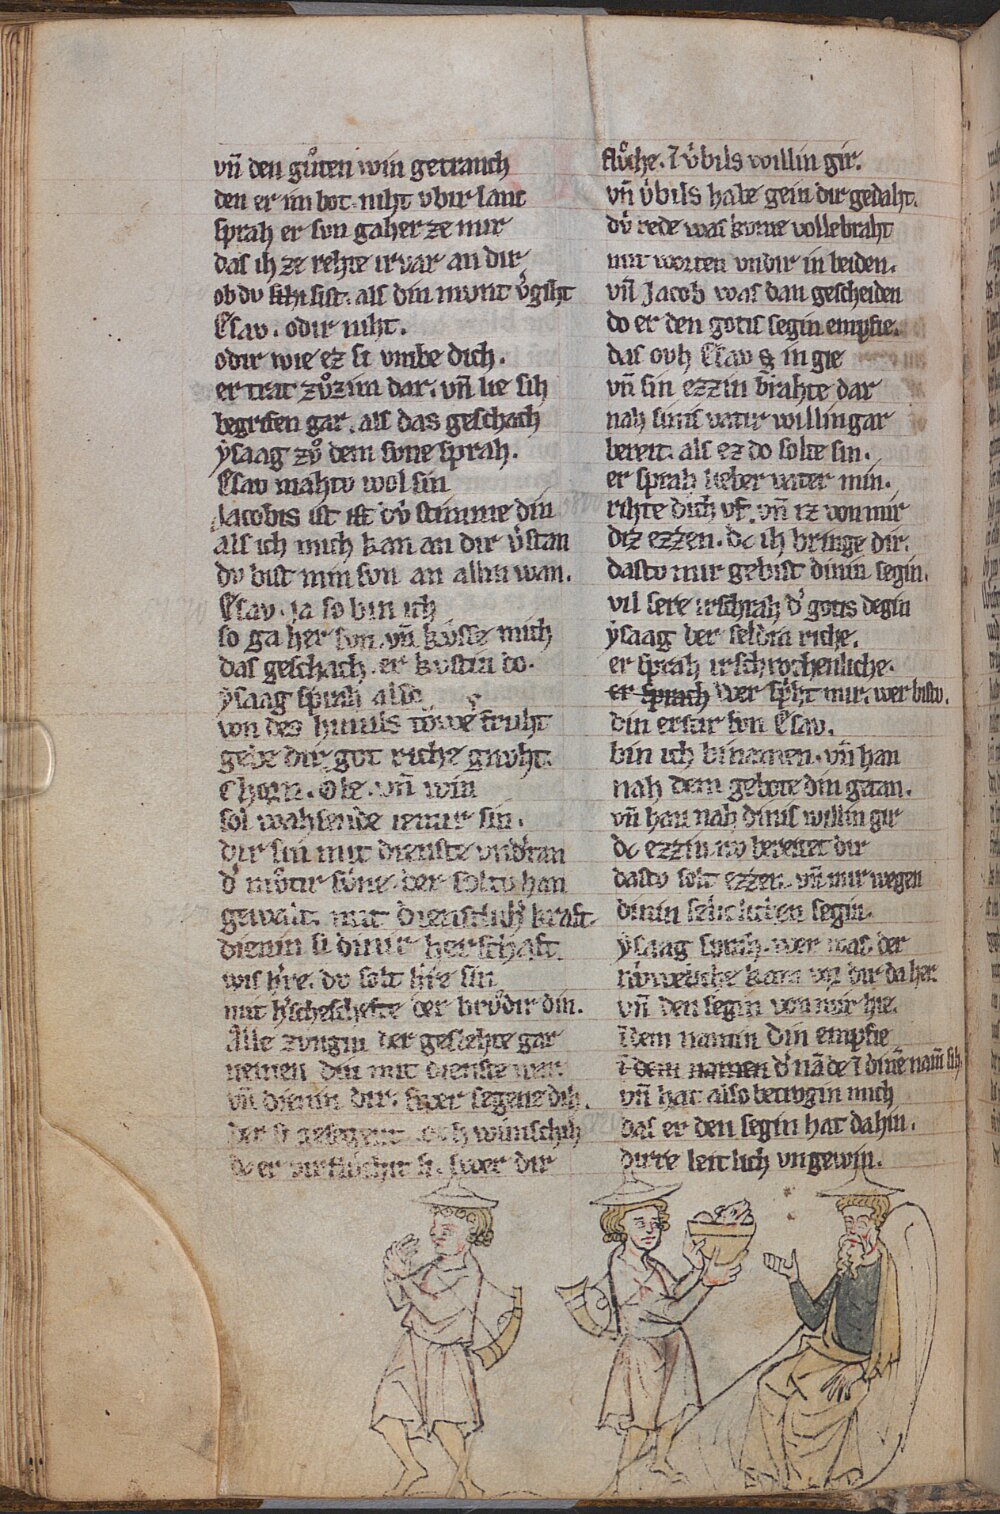 vn̄ den gůten win getranch
den er im bot. niht vbir lanc
sprah er sun gaher ze mir
das ih ze rehte irvar an dir
ob dv sist. als din munt v̓giht
Esav. odir niht.
odir wie ez si vmbe dich.
er trat zůzim dar. vn̄ lie sih
begrifen gar. als das geschach
ẏsaag zů dem sune sprah.
Esav mahtv wol sin
Jacobis ist dv̓ stimme din
als ich mich kan an dir v̓stan
dv bist min sun an allin wan.
Esav. ia so bin ich
so ga her sun. vn̄ kv̓sse mich
das geschach. er kvstin do.
ẏsaag sprah also
von des himils towe fruht
gebe dir got riche gnvht.
Chorn. Ole. vn̄ win
sol wahsende iemir sin.
dir sin mit dienste vnd̓tan
d̓ mv̊tir sv̓ne. der soltv han
gewalt. mit dienstlich̓ kraft.
dienin si dinir herschaft.
wis h̓re. dv solt h̓re sin
mit h̓scheschefte der brv̊dir din.
Alle zvngin der geslehte gar
nemen din mit dienste war
vn̄ dienin dir. swer segene dih.
der si gesegent. och wunschih
dc er virflůchit si. swer dir
flůche. ī v̓bils willin gir.
vn̄ v̓bils habe gein dir gedaht.
dv̓ rede was kvme vollebraht
mit worten vndir in beiden.
vn̄ Jacob was dan gescheiden
do er den gotis segin empfie.
das ovh Esav in gie
vn̄ sin ezzin brahte dar
nah sinis vatir willin gar
bereit. als ez do solte sin.
er sprah lieber vater min.
rihte dich vf. vn̄ iz von mir
diz ezzen. dc ih bringe dir.
dastv mir gebist dinin segin.
vil sere irschrah d̓ gotis degin
ẏsaag der seldin riche.
er sprah irschrochenliche.
er sprach wer sp̓ht mir. wer bistv.
din erstir svn Esav.
bin ich binamen. vn̄ han
nah dem gebote din getan.
vn̄ han nah dinis willin gir
dc ezzin nv bereitet dir
dastv solt ezzen. vn̄ mir wegen
dinin selicliken segin.
ẏsaag sprah. wer was der
der nv̓weliche kam vor dir da her
vn̄ den segin von mir hie.
Jdem namin din empfie
ī dem namen d̓ nā de ī dinē nam̄ sih
vn̄ hat also betrogin mich
das er den segin hat dahin.
dirre leit lich vngewin.